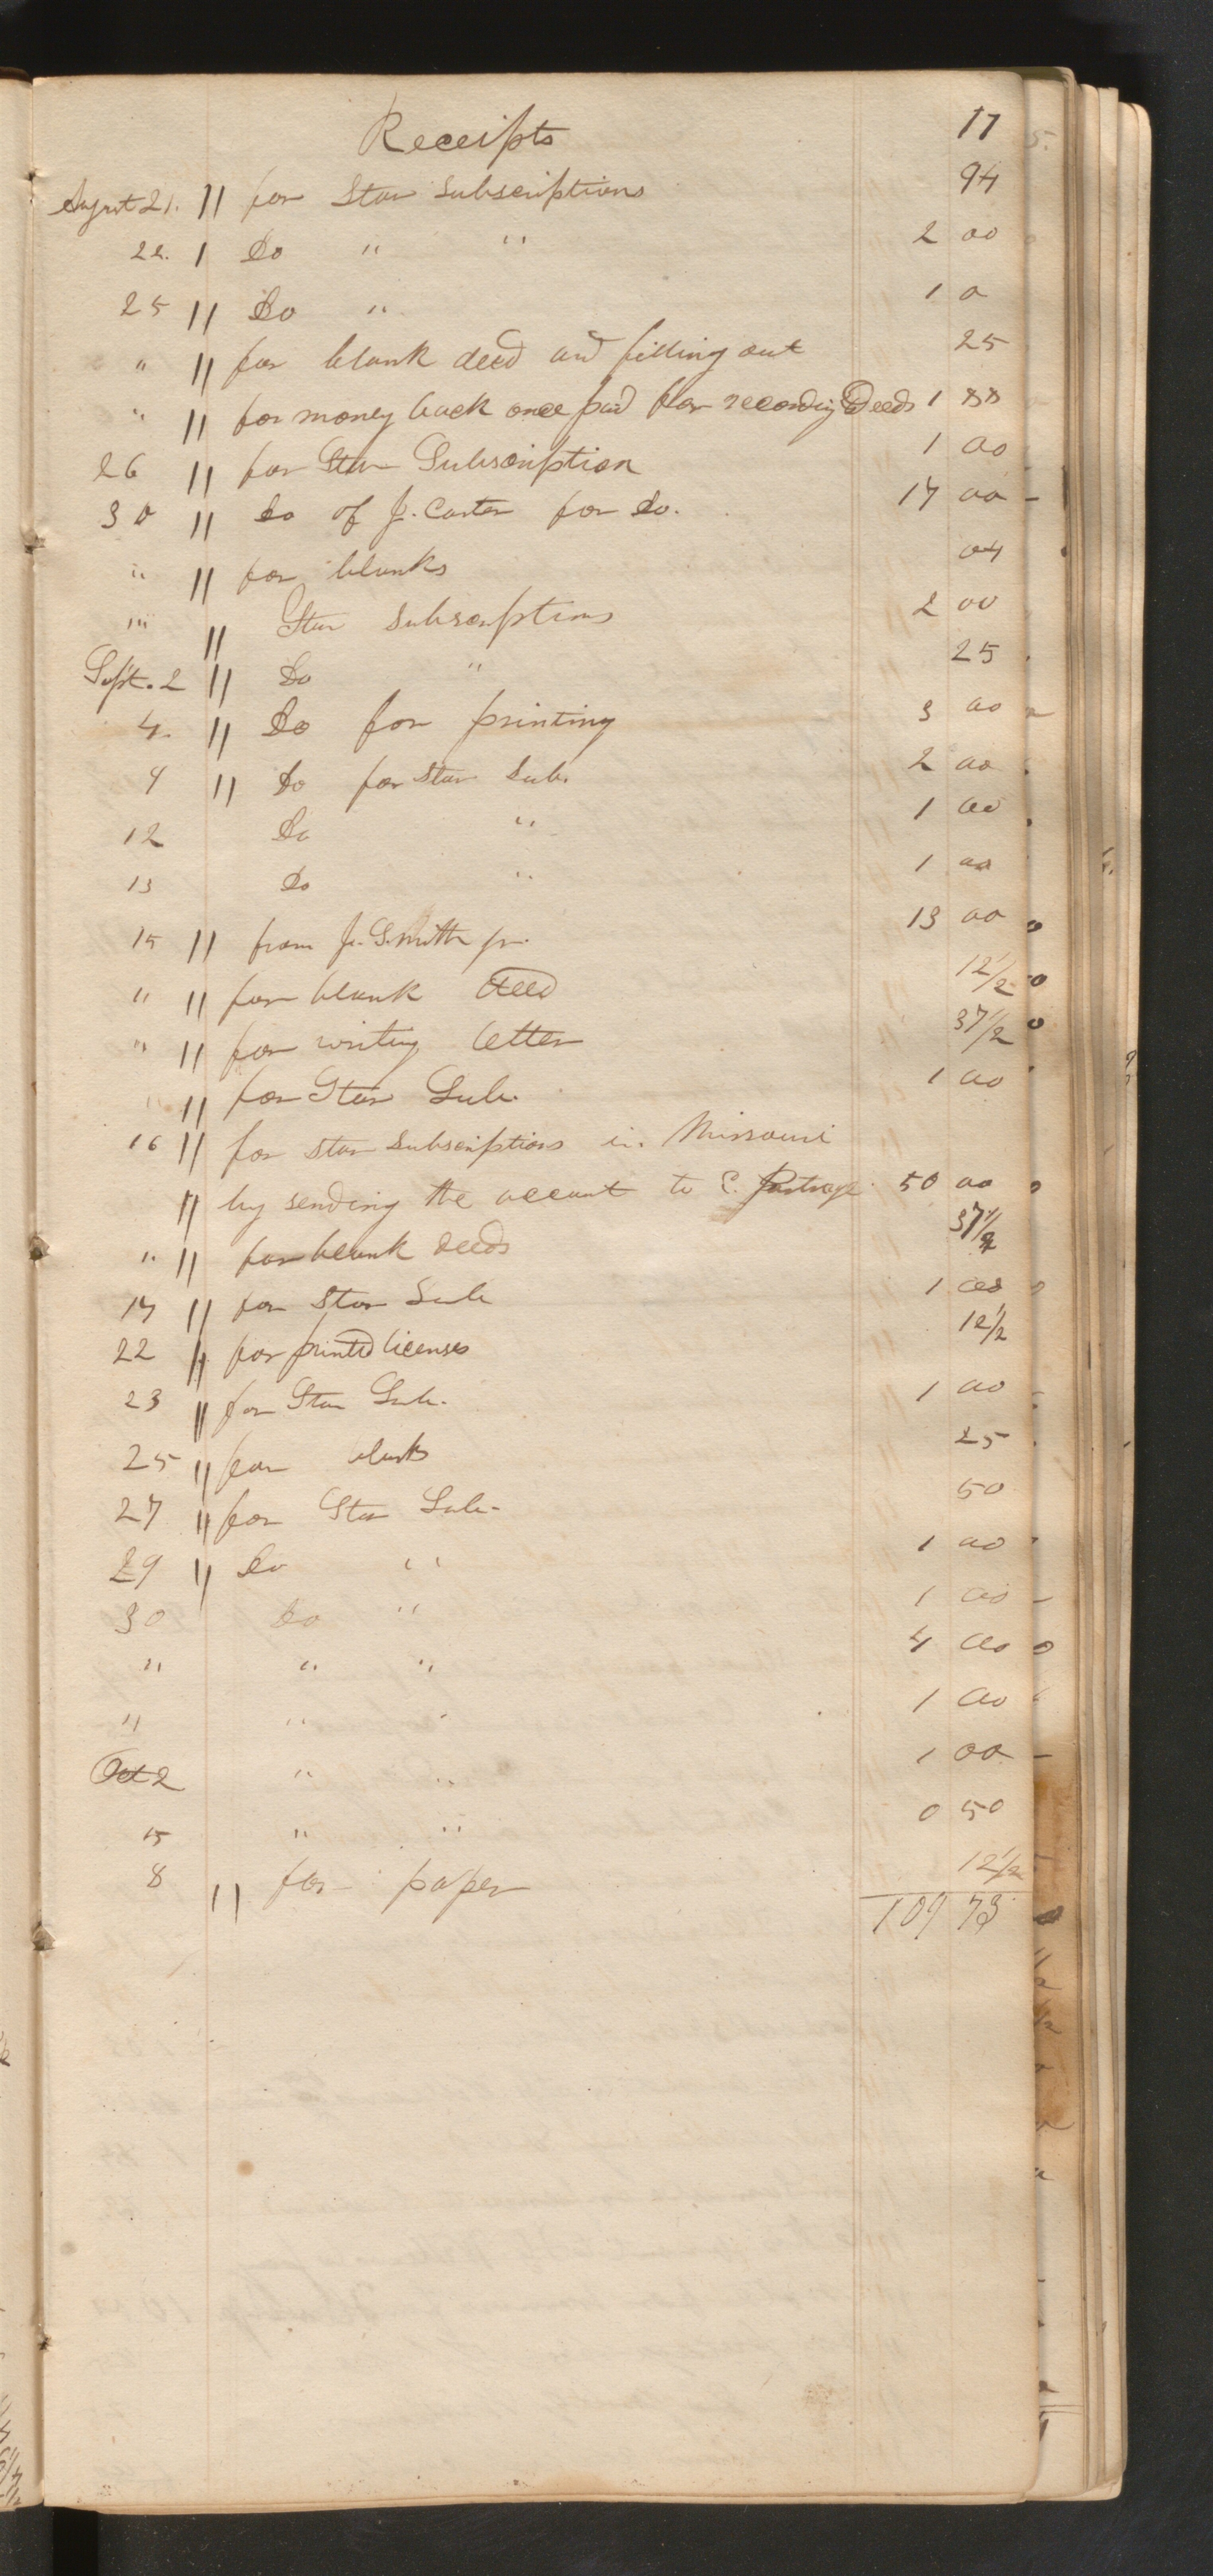 Receipts 17
August 21. " for Star Subscriptions 94
22. " Do " " 2 00
25 " Do " 1 0
" " for blank deed and filling out 25
" " for money back once paid for recording Deeds 1 88
26 " for Star Subscription 1 00
30 " Do of J. Carter for Do. 17 00
" " for blanks 04
" " Star Subscriptions 2 00
Sept. 2 " Do " 25
4. " Do for printing 3 00
9 " Do for Star Sub. 2 00
12 Do " 1 00
13 Do " 1 00
15 " from J. Smith jr. 13 00
" " for blank deed 12 1/2
" " for writing letter 37 1/2
" " for Star Sub. 1 00
16 " for star subscriptions in Missouri
" by sending the account to C. Partrage 50 00
" " for blank deeds 37 1/2
17 " for Star Sub 1 00
22 " for printed licenses 12 1/2
23 " for Star Sub. 1 00
25 " for blanks 25
27 " for Star Sub. 50
29 " Do " 1 00
30 Do " 1 00
" " " 4 00
" " " 1 00
Oct 2 " " 1 00
15 " " 0 50
8 " for paper 12 1/2
109 73